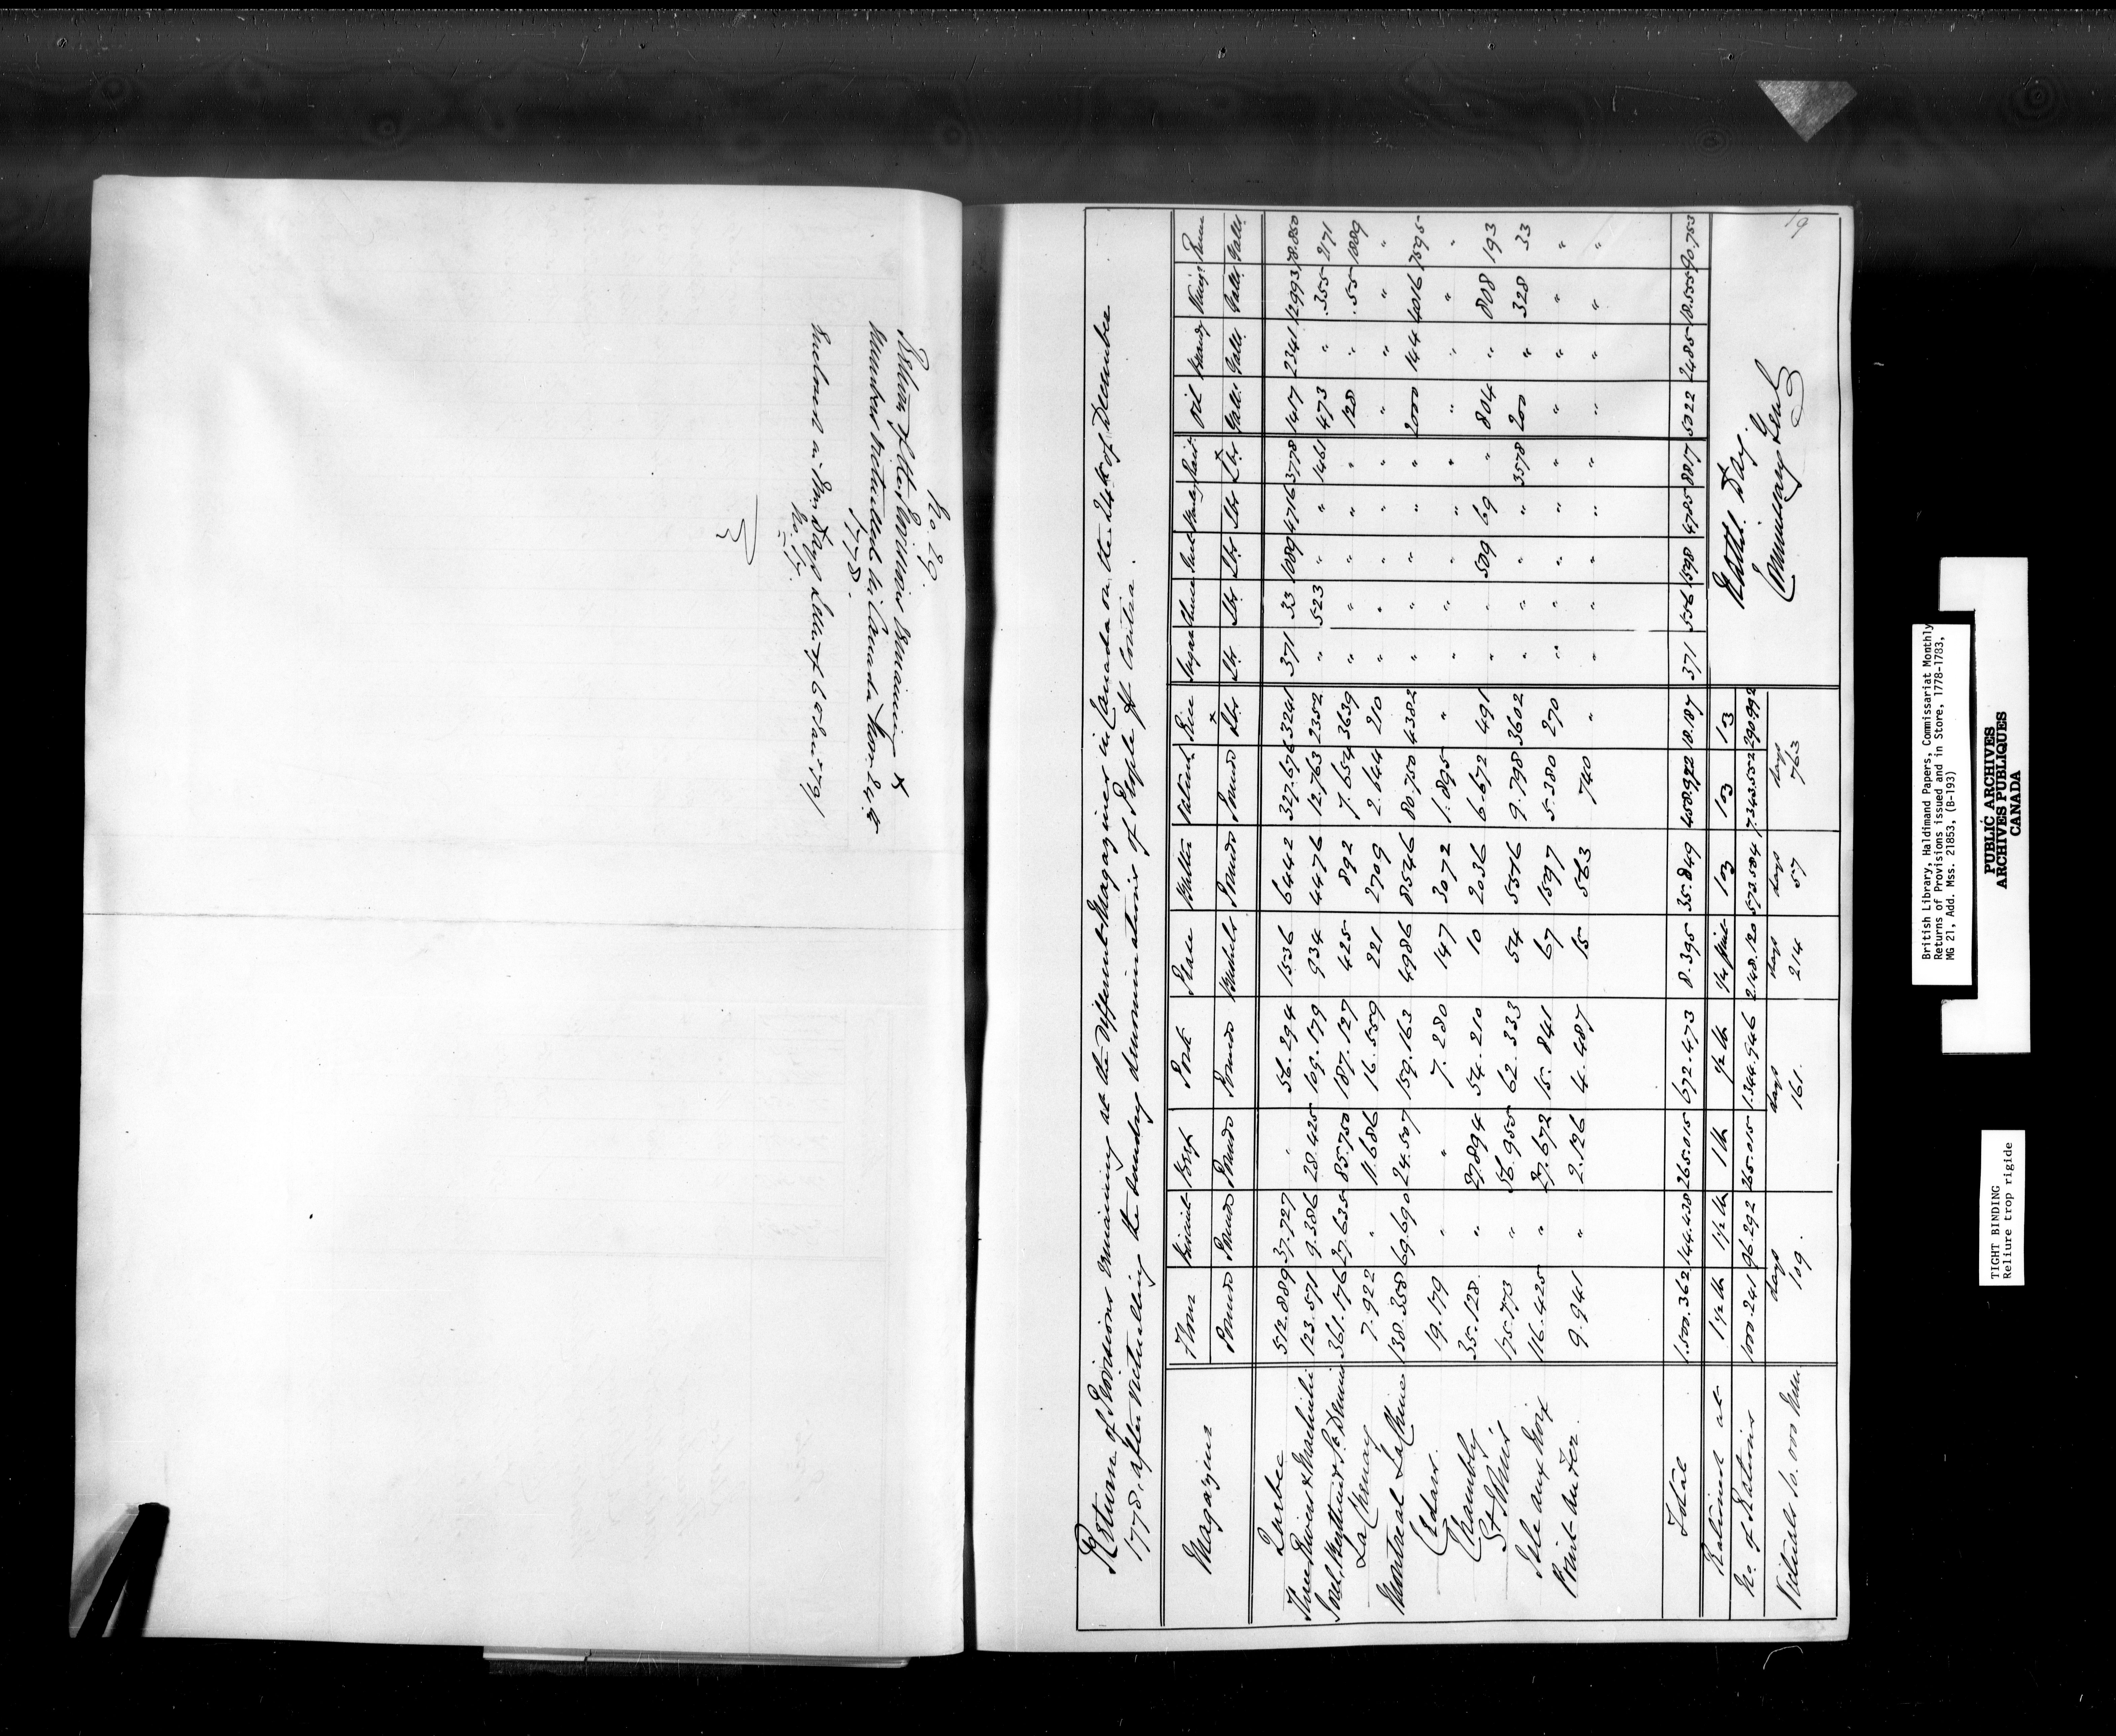 No. 29.
Return of the Provisions Remaining &
Numbers Victualled in Canada Novr. 24th
1778.
Enclosed in Mr. Day's Letter of 6th Jany 1779
No. 17.
Return of Provisions remaining at the Different Magazines in Canada on the 24th of December
1778, after victualling the sundry denominations of People &c Contra.
Magazines Flour Biscuit Beef Pork Pease Butter Oatmeal Rice Sugar Oil Brandy Vinigr Rum
Pounds Pounds Pounds Pounds Bushels Pounds Pounds Lbs Lbs Lbs Lbs Lbs Lbs Galls Galls Galls Galls
Quebec 512.889 37.727 " 56.294 1536 6442 327.676 3241 371 33 1089 4716 3778 1417 2341 12993 78.850
Three Rivers & Machiche 123.571 9.386 28.425 109.179 934 4476 12.763 2352 " 523 " " 1461 473 " 355 2171
Sorel, Berthier & St. Dennis 361.176 27.635 85.750 187.127 425 892 7.654 3639 " " " " " 128 " 55 1889
La Chenay 7.922 " 11.686 16.559 221 2709 2.644 210 " " " " " " " " "
Montreal LaChine 138.358 69.690 24.507 159.163 4986 8546 80.750 4382 " " " " " 2000 144 4016 7595
Cedars. 19.179 " " 7.280 147 3072 1.895 " " " " " " " " " "
Chambly 35.128 " 27.894 54.210 10 2036 6.672 491 " " 509 69 " 804 " 808 193
St. Johns 175.773 " 56.955 62.333 54 5516 9.798 3602 " " " " 3578 200 " 328 33
Isle aux Noix 116.425 " 27.672 15.841 67 1597 5.380 270 " " " " " " " " "
Point au Fer 9.941 " 2.126 4.487 15 563 740 " " " " " " " " " "
Total 1.500.362 144.438 265.015 672.473 8.395 35.849 458.972 18.187 371 556 1598 4785 8817 5022 2485 18.555 90.753
Rationed at 1 1/2 lb 1 1/2 lb 1 lb 1/2 lb 1/4 pint
No. of Rations 1000.241 96.292 265.015 1.344.946 2.148.120 573.584 7.343.552 290.992
Victuals 10.000 Men days 109. days 161. days 214 days 57 days 763
Nathl. Day.
Commissary Genl.
19
British Library, Haldimand Papers, Commissariat Monthly
Returns of Provisions issued and in Store, 1778-1783,
MG 21, Add. Mss. 21853, (B-193)
PUBLIC ARCHIVES
ARCHIVES PUBLIQUES
CANADA
TIGHT BINDING
Reliure trop rigide